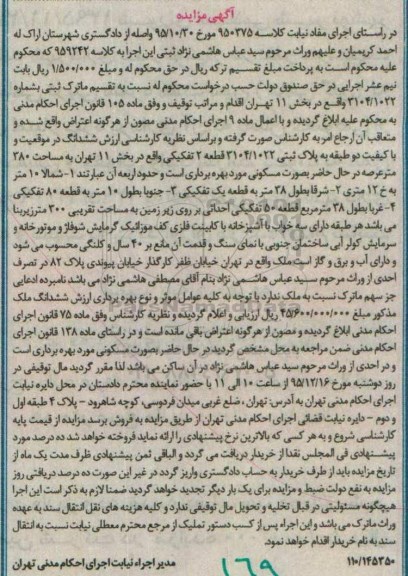 آگهی مزایده
در راستای اجرای مفاد نیابت کلاسه ۹۵۰۳۷۵ مورخ ۹۵/۱۰/۳۰ واصله از دادگستری شهرستان اراک له
احمد کریمیان و علیهم وراث مرحوم سید عباس هاشمی نژاد ثبتی این اجرا به کلاسه ۹۵۹۲۴۲ که محکوم
علیه محکوم است به پرداخت مبلغ تقسیم ترکه ریال در حق محکوم له و مبلغ ۱/۵۰۰/۰۰۰ ریال بابت
نیم عشر اجرایی در حق صندوق دولت حسب درخواست محکوم له نسبت به تقسیم ماترک ثبتی بشماره
۳۱۰۴/۱۰۲۲ واقع در بخش ۱۱ تهران اقدام و مراتب توقیف و وفق ماده ۱۰۵ قانون اجرای احکام مدنی
به محکوم علیه ابلاغ گردیده و با اعمال ماده ۹ اجرای احکام مدنی مصون از هرگونه اعتراض واقع شده و
متعاقب آن ارجاع امر به کارشناس صورت گرفته و براساس نظریه کارشناسی ارزش ششدانگ در موقعیت و
با کیفیت دو طبقه به پلاک ثبتی ۳۱۰۴/۱۰۲۲ قطعه ۲ تفکیکی واقع در بخش ۱۱ تهران به مساحت ۳۸۰
مترعرصه در حال حاضر بصورت مسکونی مورد بهره برداری است و حدود اربعه آن عبارتند ۱- شمالا ۱۰ متر
به خ ۱۲ متری ۲- شرقا بطول ۳۸ متر به قطعه یک تفکیکی ۳- جنوبا بطول ۱۰ متر به قطعه ۸۰ تفکیکی
۴- غربا بطول ۳۸ مترمربع قطعه ۵۰ تفکیکی احداثی بر روی زیر زمین به مساحت تقریبی ۳۰۰ مترزیربنا
می باشد هر طبقه دارای سه خواب با آشپزخانه با کابینت فلزی کف موزائیک گرمایش شوفاژ و موتورخانه و
سرمایش کولر آبی ساختمان جنوبی با نمای سنگ و قدمت آن مانع بر ۴۰ سال و کلنگی محسوب می شود
و دارای آب و برق و گاز است ملک واقع در تهران خیابان ظفر کارگذار خیابان پیوندی پلاک ۸۲ در تصرف
احدی از وراث مرحوم سید عباس هاشمی نژاد بنام آقای مصطفی هاشمی نژاد می باشد نامبرده ادعایی
جز سهم ماترک نسبت به ملک ندارد با توجه به کلیه عوامل موثر و نوع بهره برداری ارزش ششدانگ ملک
مذکور مبلغ ۴۵/۶۰۰/۰۰۰/۰۰۰ ریال ارزیابی و اعلام گردیده و نظریه کارشناس وفق ماده ۷۵ قانون اجرای
احکام مدنی ابلاغ گردیده و مصون از هرگونه اعتراض باقی مانده است و در راستای ماده ۱۳۸ قانون اجرای
احکام مدنی ضمن مراجعه به محل مشخص گردید در حال حاضر بصورت مسکونی مورد بهره برداری است
و در احدی از وراث مرحوم سید عباس هاشمی نژاد در آن ساکن می باشد لذا مقرر گردید مال توقیفی در
روز دوشنبه مورخ ۹۵/۱۲/۱۶ از ساعت ۱۰ الی ۱۱ با حضور نماینده محترم دادستان در محل دایره نیابت
اجرای احکام مدنی تهران به آدرس: تهران، ضلع غربی میدان فردوسی، کوچه شاهرود - پلاک ۴ طبقه اول
و دوم - دایره نیابت قضائی اجرای احکام مدنی تهران از طریق مزایده به فروش برسد مزایده از قیمت پایه
کارشناسی شروع و به هر کسی که بالاترین نرخ پیشنهادی را ارائه نماید فروخته خواهد شد ده درصد مورد
پیشنهادی فی المجلس نقدا از خریدار دریافت می گردد و الباقی ثمن پیشنهادی ظرف مدت یک ماه از
تاریخ مزایده باید از طرف خریدار به حساب دادگستری واریز گردد در غیر این صورت ده درصد دریافتی روز
مزایده به نفع دولت ضبط و مزایده برای یک بار دیگر تجدید خواهد گردید ضمنا لازم به ذکر است این اجرا
هیچگونه مسئولیتی در قبال تخلیه و تحویل مال توقیفی ندارد و کلیه هزینه های نقل انتقال سند به عهده
وراث ماترک می باشد و این اجراء پس از کسب دستور تملیک از مرجع محترم معطی نیابت نسبت به انتقال
سند به نام خریدار اقدام خواهد نمود.
۱۱۰/۱۴۵۳۵۰ مدیر اجراء نیابت اجرای احکام مدنی تهران
۱۶۹